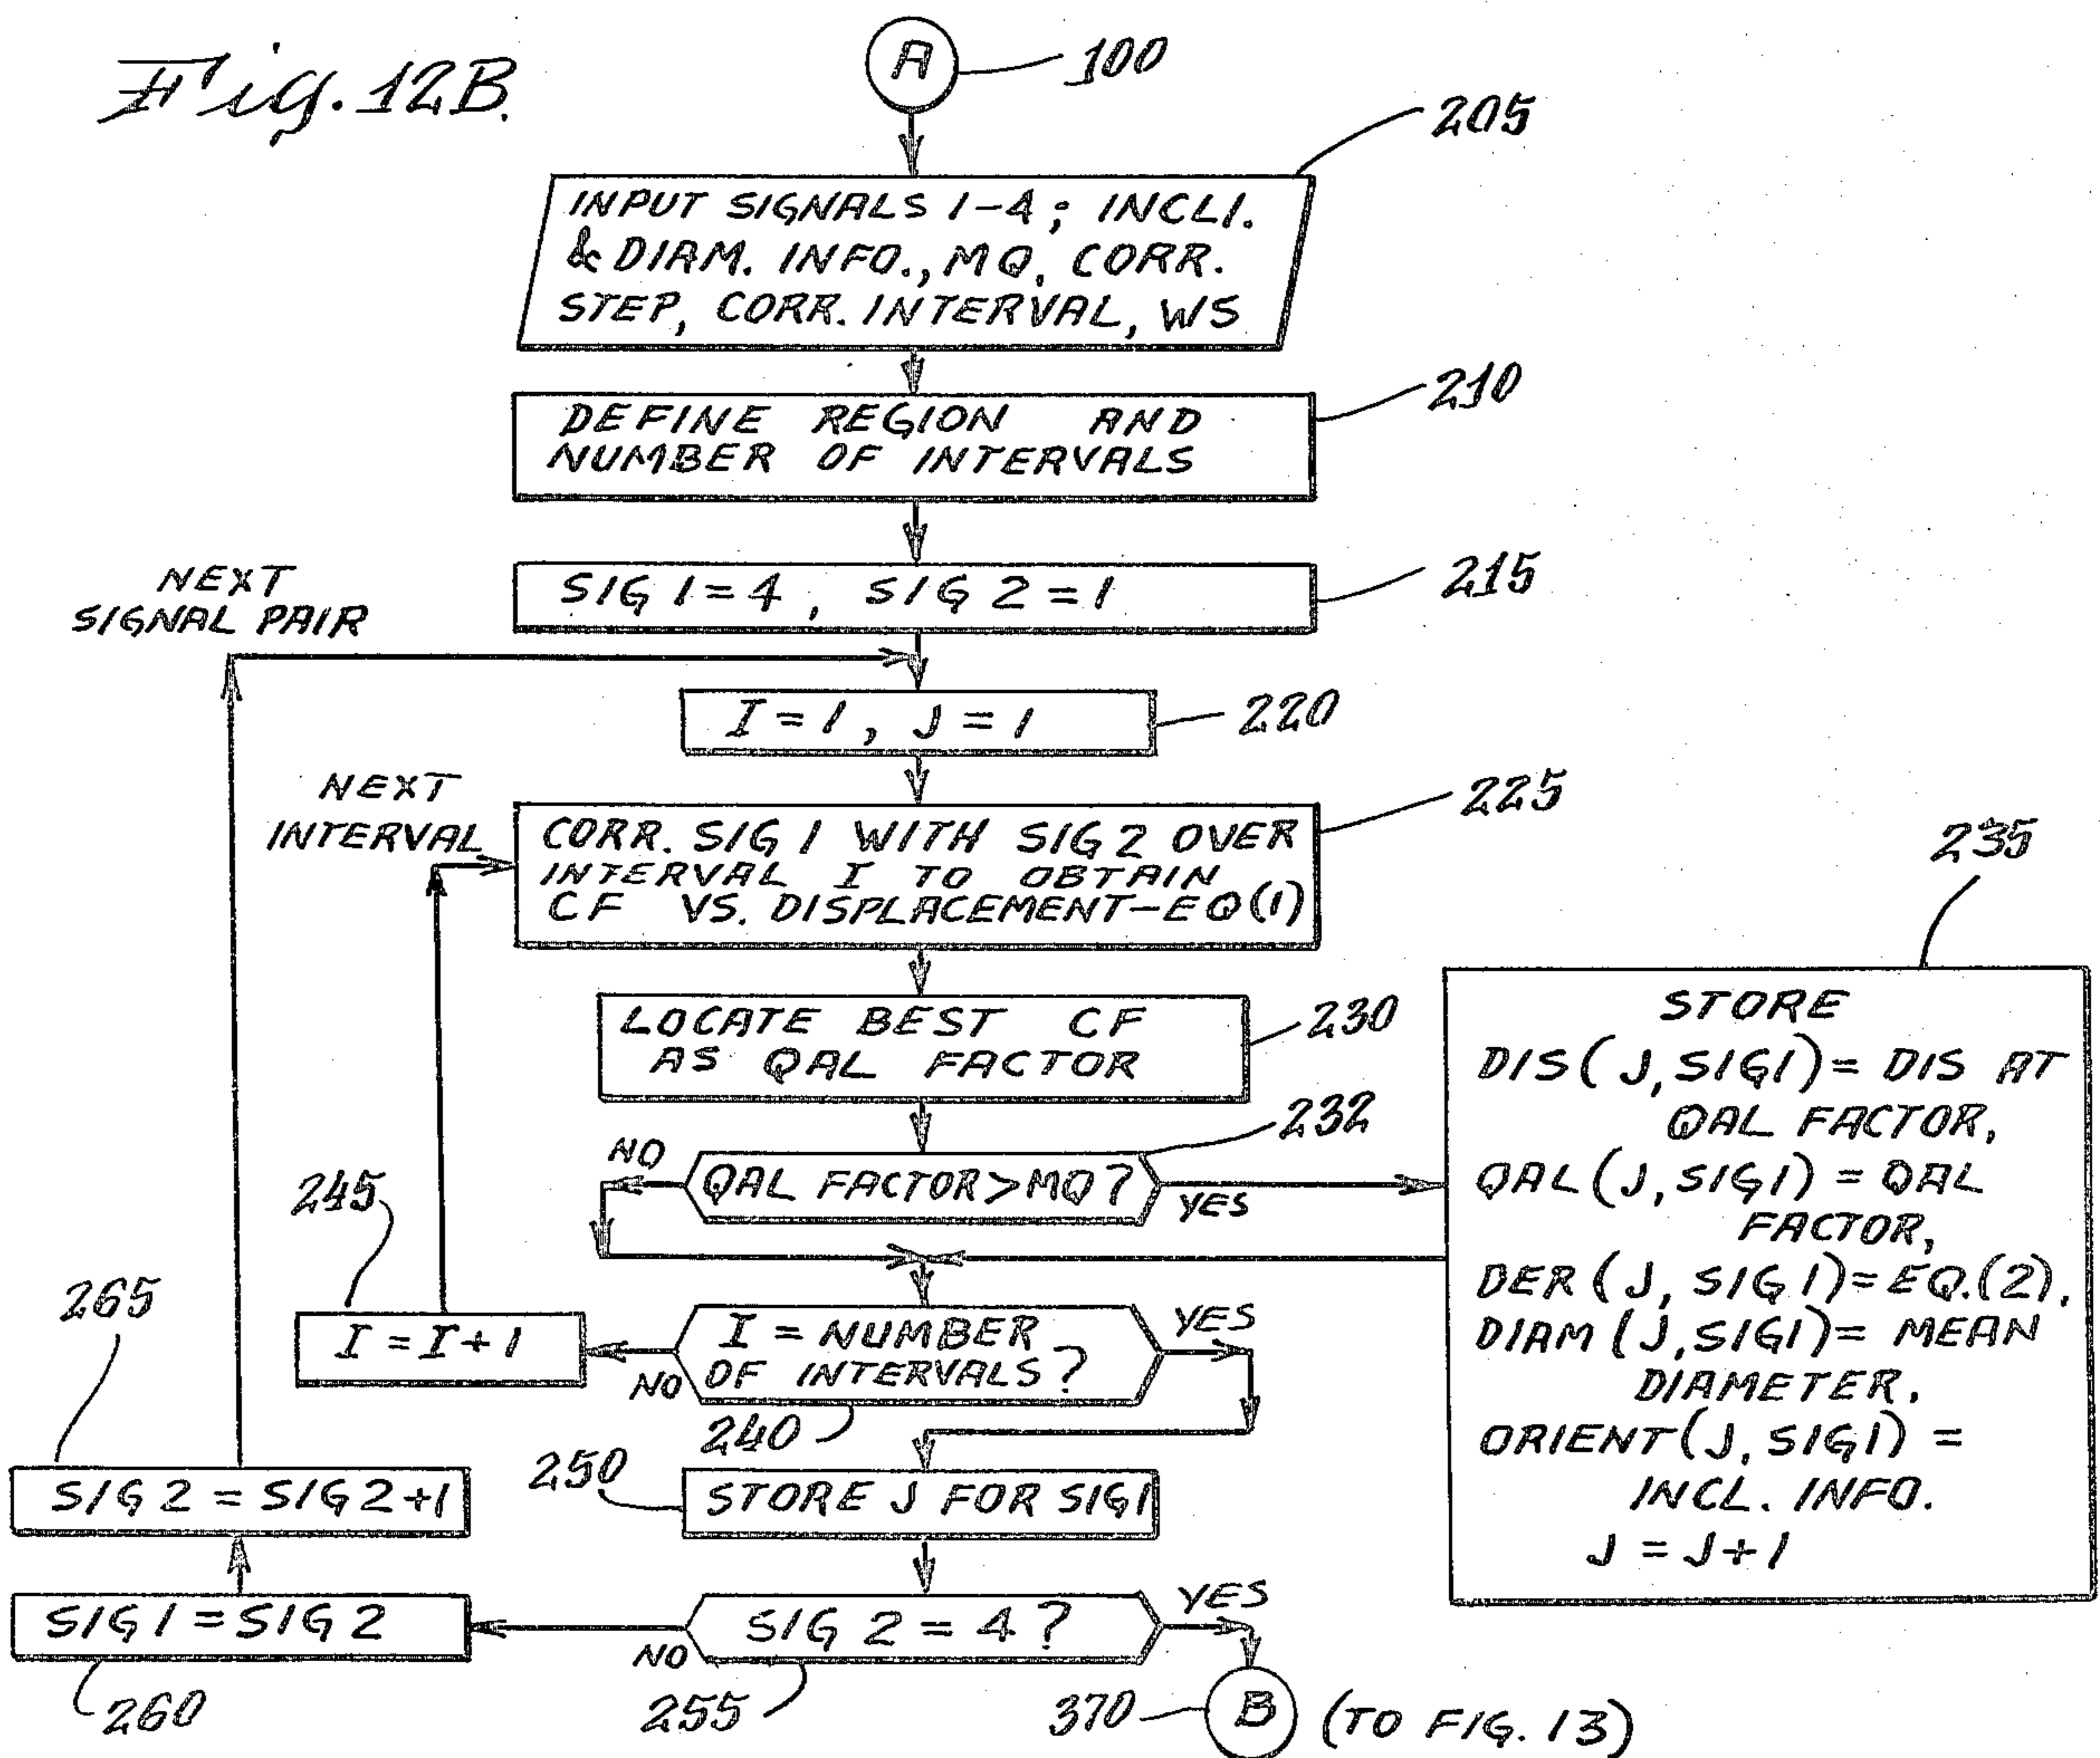 Fig. 12B.
A
100
205
INPUT SIGNALS 1-4; INCLI.
& DIAM. INFO., MQ, CORR.
STEP, CORR. INTERVAL, WS
210
DEFINE REGION AND
NUMBER OF INTERVALS
215
SIG 1 = 4, SIG 2 = 1
NEXT
SIGNAL PAIR
I = 1, J = 1
220
NEXT
INTERVAL
225
CORR. SIG 1 WITH SIG 2 OVER
INTERVAL I TO OBTAIN
CF VS. DISPLACEMENT-EQ(1)
235
LOCATE BEST CF
AS QAL FACTOR
230
232
NO
QAL FACTOR>MQ?
YES
STORE
DIS(J,SIG1)= DIS AT
QAL FACTOR,
QAL(J,SIG1) = QAL
FACTOR,
DER(J, SIG1)=EQ.(2),
DIAM(J,SIG1)= MEAN
DIAMETER,
ORIENT(J,SIG1) =
INCL. INFO.
J = J+1
245
I = I+1
I = NUMBER
OF INTERVALS?
YES
NO
240
265
SIG 2 = SIG2+1
250
STORE J FOR SIG1
SIG 1 = SIG 2
260
SIG 2 = 4?
YES
NO
255
370
B
(TO FIG. 13)